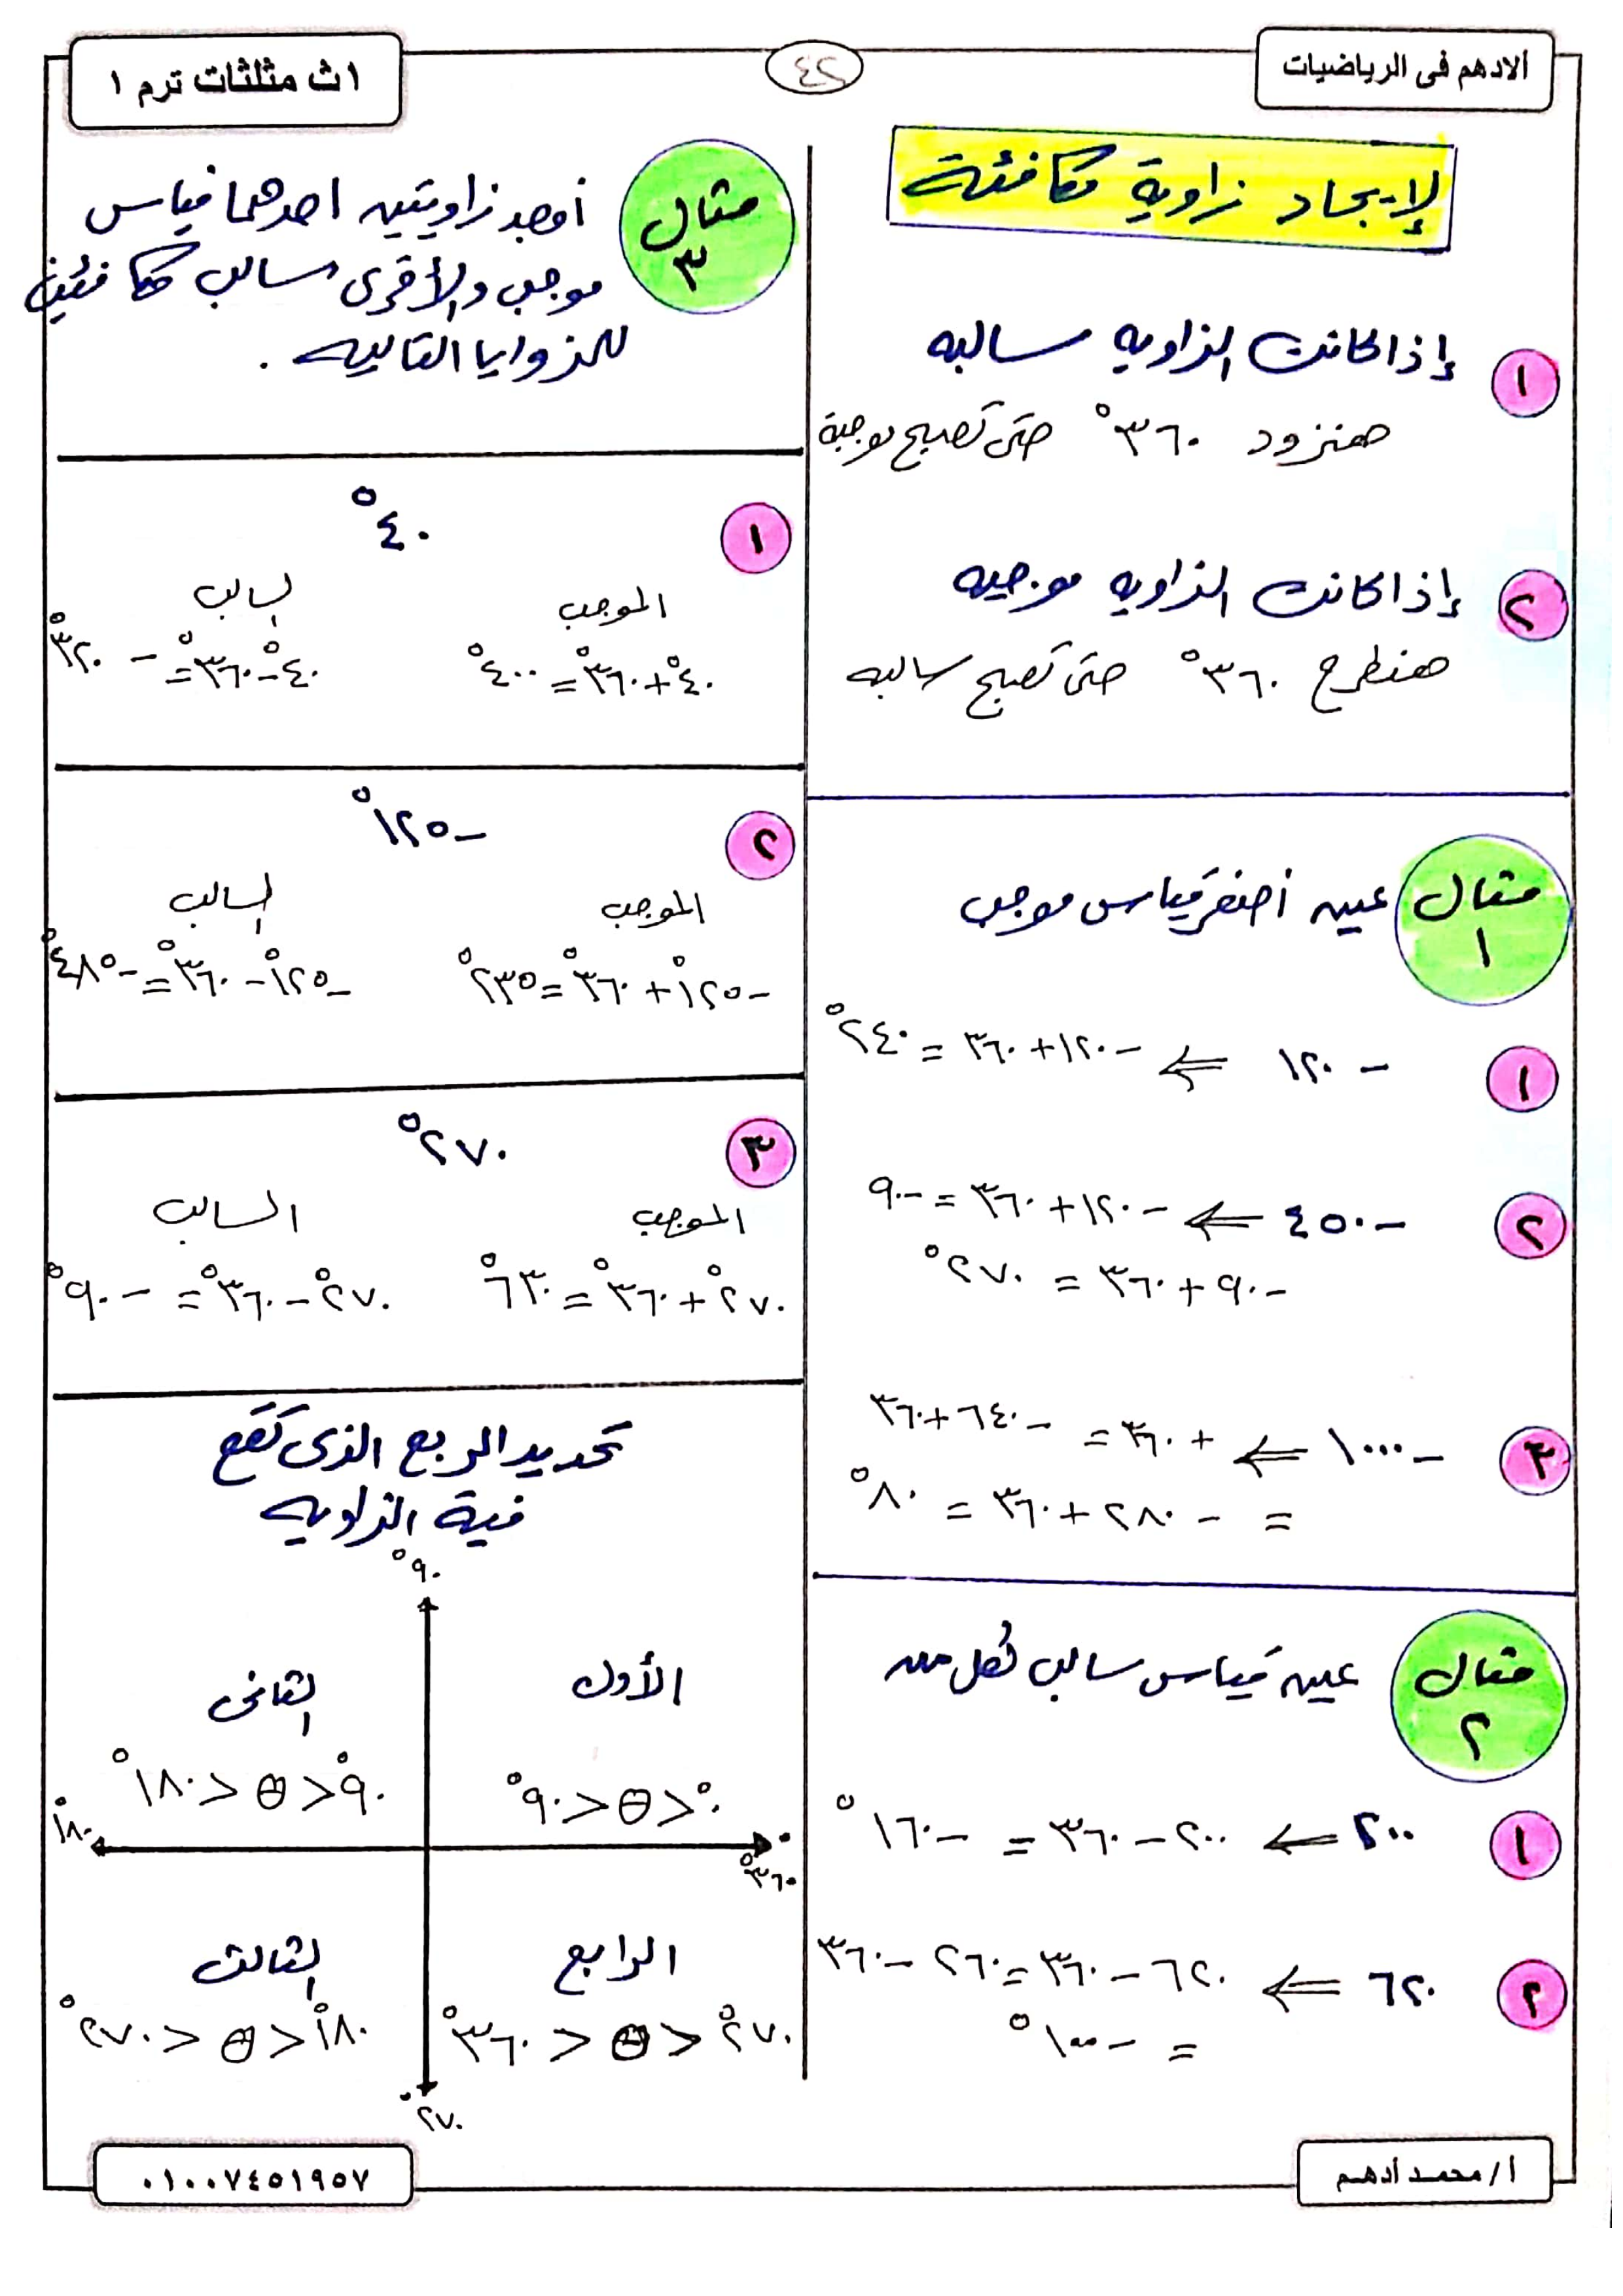 الادهم فى الرياضيات
٤٢
١ث مثلثات ترم ١
لإيجاد زاوية مكافئة
١ إذا كانت الزاويه سالبه
هنزود ٣٦٠° حتى تصبح موجبة
٢ إذا كانت الزاويه موجبه
هنطرح ٣٦٠° حتى تصبح سالبه
مثال ١ عين أصغر قياس موجب
١ -١٢٠ ⇐ -١٢٠+٣٦٠ = ٢٤٠°
٢ -٤٥٠ ⇐ -١٢٠+٣٦٠ = -٩٠
-٩٠+٣٦٠ = ٢٧٠°
٣ -١٠٠٠ ⇐ +٣٦٠ = -٦٤٠+٣٦٠
= -٢٨٠+٣٦٠ = ٨٠°
مثال ٢ عين قياس سالب لكل من
١ ٢٠٠ ← ٢٠٠-٣٦٠ = -١٦٠°
٢ ٦٢٠ ⇐ ٦٢٠-٣٦٠=٢٦٠-٣٦٠
= -١٠٠°
مثال ٣ أوجد زاويتين احدهما قياس
موجب والأخرى سالب مكافئين
للزوايا التاليه .
١ ٤٠°
الموجب السالب
٤٠°+٣٦٠°=٤٠٠° ٤٠°-٣٦٠°= -٣٢٠°
٢ -١٢٥°
الموجب السالب
-١٢٥°+٣٦٠°=٢٣٥° -١٢٥°-٣٦٠°=-٤٨٥°
٣ ٢٧٠°
الموجب السالب
٢٧٠°+٣٦٠°=٦٣٠° ٢٧٠°-٣٦٠°= -٩٠°
تحديد الربع الذى تقع
فية الزاويه
٩٠°
الأول الثانى
٠°<θ<٩٠° ٩٠°<θ<١٨٠°
٠ ١٨٠°
٣٦٠°
الرابع الثالث
٢٧٠°<θ<٣٦٠° ١٨٠°<θ<٢٧٠°
٢٧٠°
أ/محمد أدهم
٠١٠٠٧٤٥١٩٥٧